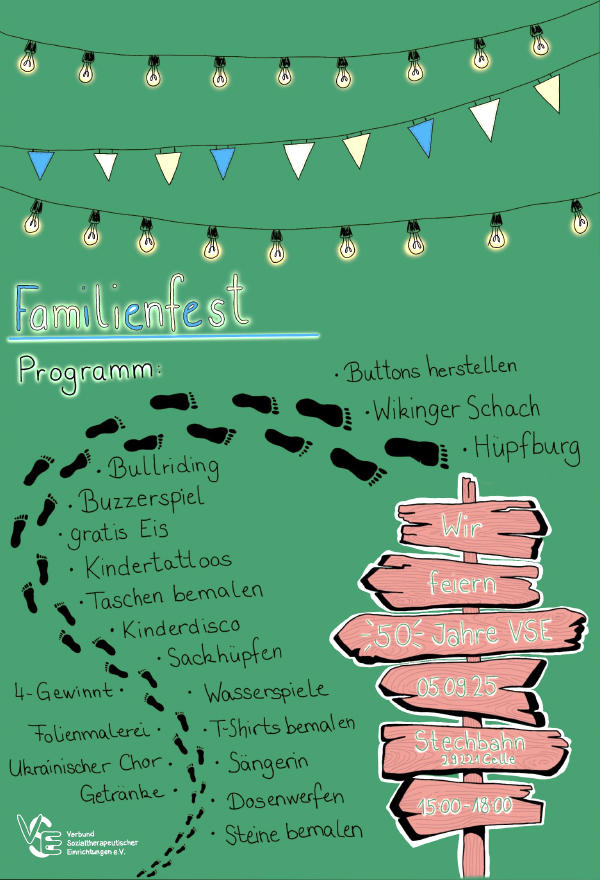 Familienfest
Programm:
· Buttons herstellen
· Wikinger Schach
· Hüpfburg
· Bullriding
· Buzzerspiel
· gratis Eis
· Kindertattoos
· Taschen bemalen
· Kinderdisco
· Sackhüpfen
4-Gewinnt ·
· Wasserspiele
Folienmalerei ·
· T-Shirts bemalen
Ukrainischer Chor ·
· Sängerin
Getränke ·
· Dosenwerfen
· Steine bemalen
Wir
feiern
50 Jahre VSE
05.09.25
Stechbahn
29221 Celle
15:00-18:00
VSE
Verbund
Sozialtherapeutischer
Einrichtungen e.V.